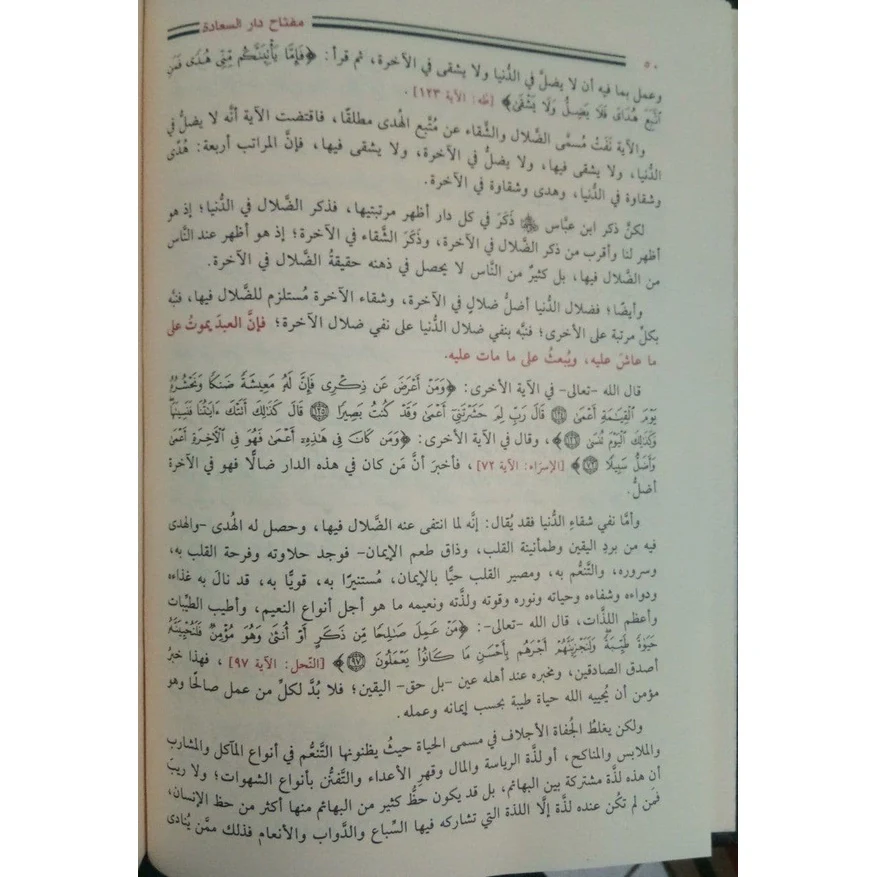 مفتاح دار السعادة
٥٠
وعمل بما فيه أن لا يضلَّ في الدُّنيا ولا يشقى في الآخرة، ثم قرأ: ﴿فَإِمَّا يَأْتِيَنَّكُم مِّنِّي هُدًى فَمَنِ
اتَّبَعَ هُدَايَ فَلَا يَضِلُّ وَلَا يَشْقَىٰ﴾ [طه: الآية ١٢٣].
والآية نَفَتْ مُسمَّى الضَّلال والشَّقاء عن مُتَّبع الهُدى مطلقًا، فاقتضت الآية أنَّه لا يضلُّ في
الدُّنيا، ولا يشقى فيها، ولا يضلُّ في الآخرة، ولا يشقى فيها، فإنَّ المراتب أربعة: هُدًى
وشقاوة في الدُّنيا، وهدى وشقاوة في الآخرة.
لكنْ ذكر ابن عبَّاس ﵄ ذَكَرَ في كل دار أظهر مرتبتيها، فذكر الضَّلال في الدُّنيا؛ إذ هو
أظهر لنا وأقرب من ذكر الضَّلال في الآخرة، وذَكَرَ الشَّقاء في الآخرة؛ إذ هو أظهر عند النَّاس
من الضَّلال فيها، بل كثيرٌ من النَّاس لا يحصل في ذهنه حقيقةُ الضَّلال في الآخرة.
وأيضًا؛ فضلال الدُّنيا أضلُّ ضلالٍ في الآخرة، وشقاء الآخرة مُستلزم للضَّلال فيها، فنبَّه
بكلِّ مرتبة على الأخرى؛ فنبَّه بنفي ضلال الدُّنيا على نفي ضلال الآخرة؛ فإنَّ العبدَ يموتُ على
ما عاشَ عليه، ويُبعثُ على ما مات عليه.
قال الله -تعالى- في الآية الأخرى: ﴿وَمَنْ أَعْرَضَ عَن ذِكْرِي فَإِنَّ لَهُ مَعِيشَةً ضَنكًا وَنَحْشُرُهُ
يَوْمَ الْقِيَامَةِ أَعْمَىٰ ١٢٤ قَالَ رَبِّ لِمَ حَشَرْتَنِي أَعْمَىٰ وَقَدْ كُنتُ بَصِيرًا ١٢٥ قَالَ كَذَٰلِكَ أَتَتْكَ ءَايَٰتُنَا فَنَسِيتَهَا
وَكَذَٰلِكَ الْيَوْمَ تُنسَىٰ ١٢٦﴾، وقال في الآية الأخرى: ﴿وَمَن كَانَ فِي هَٰذِهِ أَعْمَىٰ فَهُوَ فِي الْآخِرَةِ أَعْمَىٰ
وَأَضَلُّ سَبِيلًا ٧٢﴾ [الإسرَاء: الآية ٧٢]، فأخبرَ أنَّ مَن كان في هذه الدار ضالًّا فهو في الآخرة
أضلُّ.
وأمَّا نفي شقاءِ الدُّنيا فقد يُقال: إنَّه لما انتفى عنه الضَّلال فيها، وحصل له الهُدى -والهدى
فيه من بردِ اليقين وطمأنينة القلب، وذاق طعم الإيمان- فوجد حلاوته وفرحة القلب به،
وسروره، والتَّنعُّم به، ومصير القلب حيًّا بالإيمان، مُستنيرًا به، قويًّا به، قد نالَ به غذاءه
ودواءه وشفاءه وحياته ونوره وقوته ولذَّته ونعيمه ما هو أجل أنواع النعيم، وأطيب الطيِّبات
وأعظم اللذَّات، قال الله -تعالى-: ﴿مَنْ عَمِلَ صَالِحًا مِّن ذَكَرٍ أَوْ أُنثَىٰ وَهُوَ مُؤْمِنٌ فَلَنُحْيِيَنَّهُ
حَيَوٰةً طَيِّبَةً وَلَنَجْزِيَنَّهُمْ أَجْرَهُم بِأَحْسَنِ مَا كَانُوا يَعْمَلُونَ ٩٧﴾ [النّحل: الآية ٩٧]، فهذا خبرُ
أصدق الصادقين، ومخبره عند أهله عين -بل حق- اليقين؛ فلا بُدَّ لكلِّ من عمل صالحًا وهو
مؤمن أن يُحييه الله حياة طيبة بحسب إيمانه وعمله.
ولكن يغلطُ الجُفاة الأجلاف في مسمى الحياة حيثُ يظنونها التَّنعُّم في أنواع المآكل والمشارب
والملابس والمناكح، أو لذَّة الرياسة والمال وقهرِ الأعداء والتَّفنُّن بأنواع الشهوات؛ ولا ريبَ
أن هذه لذَّة مشتركة بين البهائم، بل قد يكون حظُّ كثير من البهائم منها أكثر من حظ الإنسان،
فمَن لم تكُن عنده لذَّة إلَّا اللذة التي تشاركه فيها السِّباع والدَّواب والأنعام فذلك ممَّن يُنادى